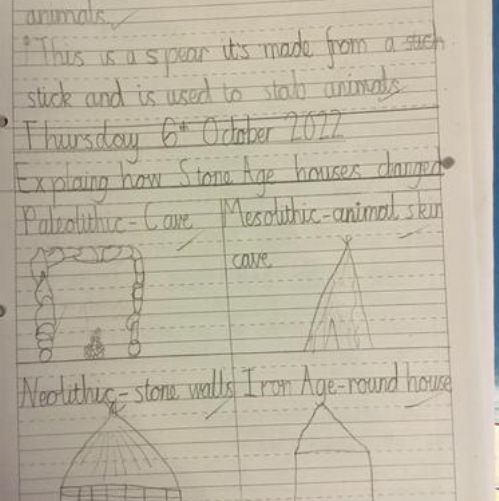 animals.
This is a spear it's made from a stick
stick and is used to stab animals
Thursday 6th October 2022
Explaing how Stone Age houses changed
Paleolithic - Cave
Mesolithic - animal skin
cave
Neolithic - stone walls
Iron Age - round house